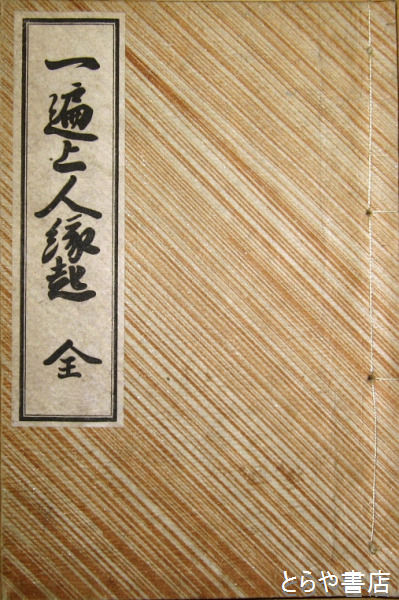 一遍上人縁起 全
とらや書店